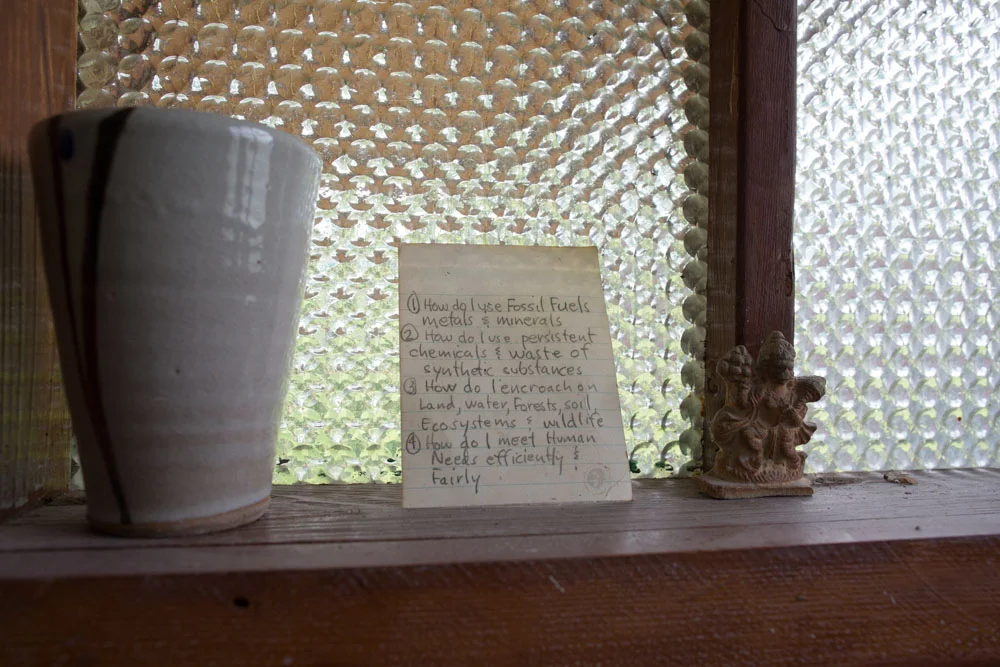 ① How do I use Fossil Fuels
metals & minerals
② How do I use persistent
chemicals & waste of
synthetic substances
③ How do I encroach on
Land, water, Forests, soil
Ecosystems & wildlife
④ How do I meet Human
Needs efficiently &
Fairly